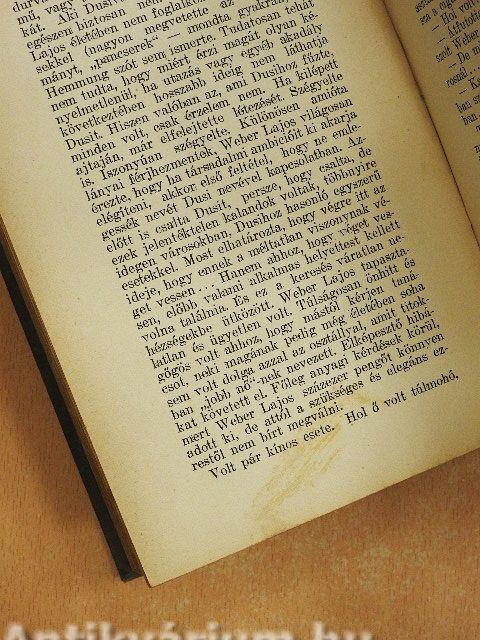 mű, vagy
kát. Aki Dusiva
egészen biztosan nem foglalko
Lajos életében nem
sekkel (nagyon megvetette az
mányt, „pancserek" — mondta gyakran
Hemmung szót sem ismerte. Tudatosan tehát
nem tudta, hogy miért érzi magát olyan ké-
nyelmetlenül, ha utazás vagy egyéb akadály
következtében hosszabb ideig nem láthatja
Dusit. Hiszen valóban az, ami Dusihoz fűzte,
minden volt, csak érzelem nem. Ha kilépett
ajtaján, már elfelejtette létezését. Szégyelte
is. Iszonyúan szégyelte. Különösen amióta
lányai férjhezmentek, Weber Lajos világosan
érezte, hogy ha társadalmi ambicióit ki akarja
elégíteni, akkor első feltétel, hogy ne emle-
gessék nevét Dusi nevével kapcsolatban. Az-
előtt is csalta Dusit, persze, hogy csalta, de
ezek jelentéktelen kalandok voltak, többnyire
idegen városokban, Dusihoz hasonló egyszerű
esetekkel. Most elhatározta, hogy végre itt az
ideje, hogy ennek a méltatlan viszonynak vé-
get vessen... Hanem ahhoz, hogy véget ves-
sen, előbb valami alkalmas helyettest kellett
volna találnia. És ez a keresés váratlan ne-
hézségekbe ütközött. Weber Lajos tapaszta-
latlan és ügyetlen volt. Túlságosan önhitt és
gőgös volt ahhoz, hogy mástól kérjen taná-
csot, neki magának pedig még életében soha
sem volt dolga azzal az osztállyal, amit titok-
ban „jobb nő"-nek nevezett. Elképesztő hibá-
kat követett el. Főleg anyagi kérdések körül,
mert Weber Lajos százezer pengőt könnyen
adott ki, de attól a szükséges és elegáns ez-
restől nem bírt megválni.
Volt pár kínos esete. Hol ő volt túlmohó,
sza a
— Hol
—
szok Weber
— De m
rosnál...
— Ka
ban sz
ban.
Antikvárium.hu